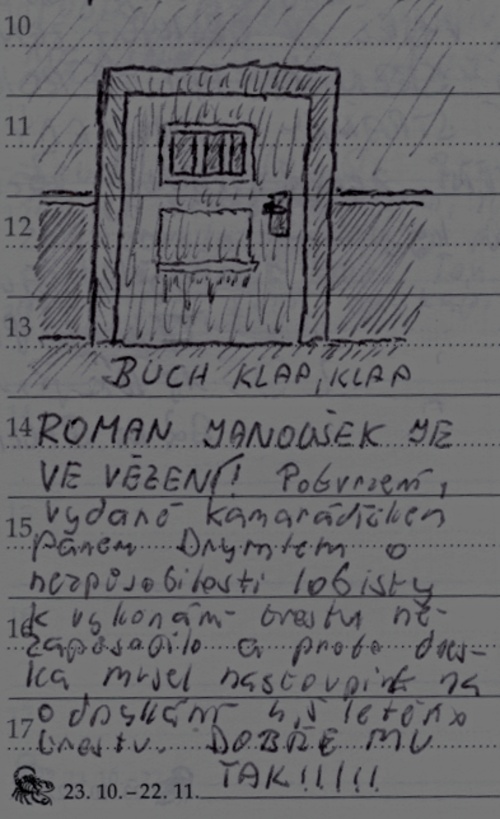 10
11
12
13
BUCH KLAP, KLAP
14 ROMAN JANOUŠEK JE
VE VĚZENÍ! Potvrzení,
vydané kamarádíčkem
15
pánem Drymlem o
nezpůsobilosti lobisty
16 k vykonání trestu ne-
zapůsobilo a proto dnes-
ka musel nastoupit na
17 odpykání 4,5 letého
trestu. DOBŘE MU
TAK!!!!!
23. 10. – 22. 11.